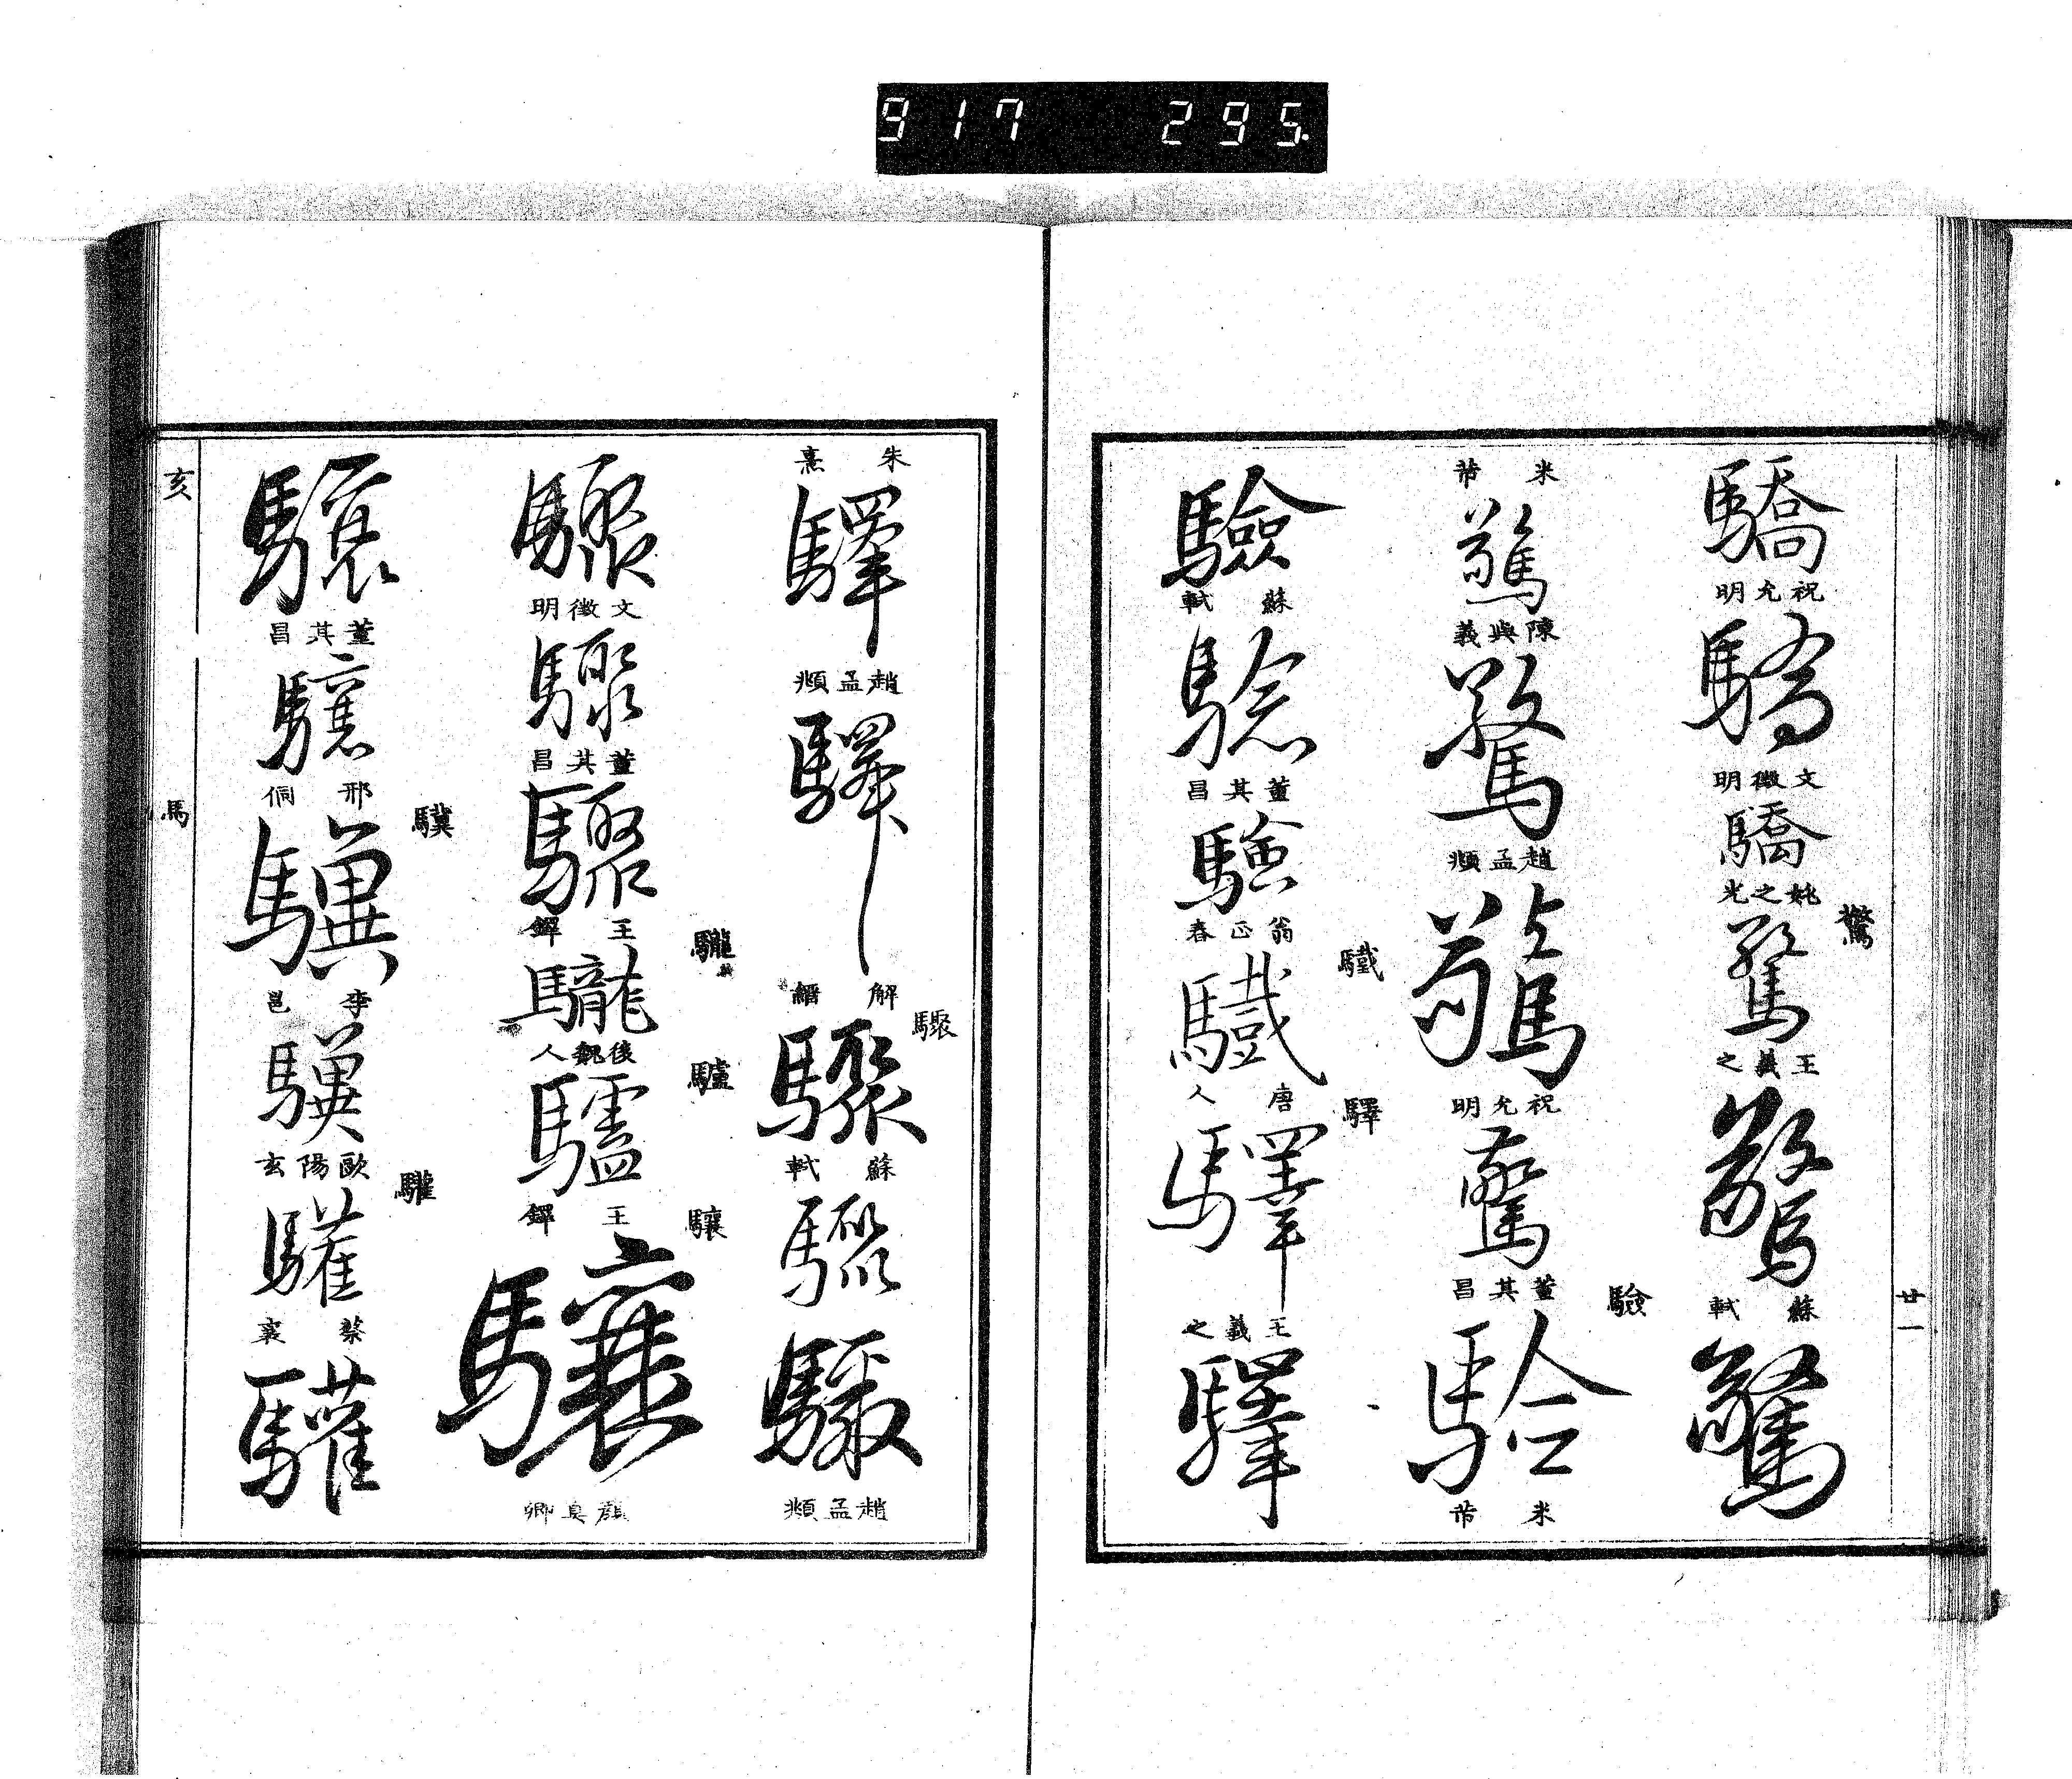 917 295
驕
祝允明
驕
文徵明
驕
姚之光
驚
驚
王羲之
驚
蘇軾
驚
廿一
米芾
驚
陳與義
驚
趙孟頫
驚
祝允明
驚
董其昌
驗
驗
米芾
驗
蘇軾
驗
董其昌
驗
翁正春
驖
驖
唐人
驛
驛
王羲之
驛
朱熹
驛
趙孟頫
驛
解縉
驟
驟
蘇軾
驟
驟
趙孟頫
驟
文徵明
驟
董其昌
驟
王鐸
驡
後魏人
驢
驢
王鐸
驤
驤
顏真卿
驤
董其昌
驤
邢侗
驥
驥
李邕
驥
歐陽玄
驩
驩
蔡襄
驩
亥
馬